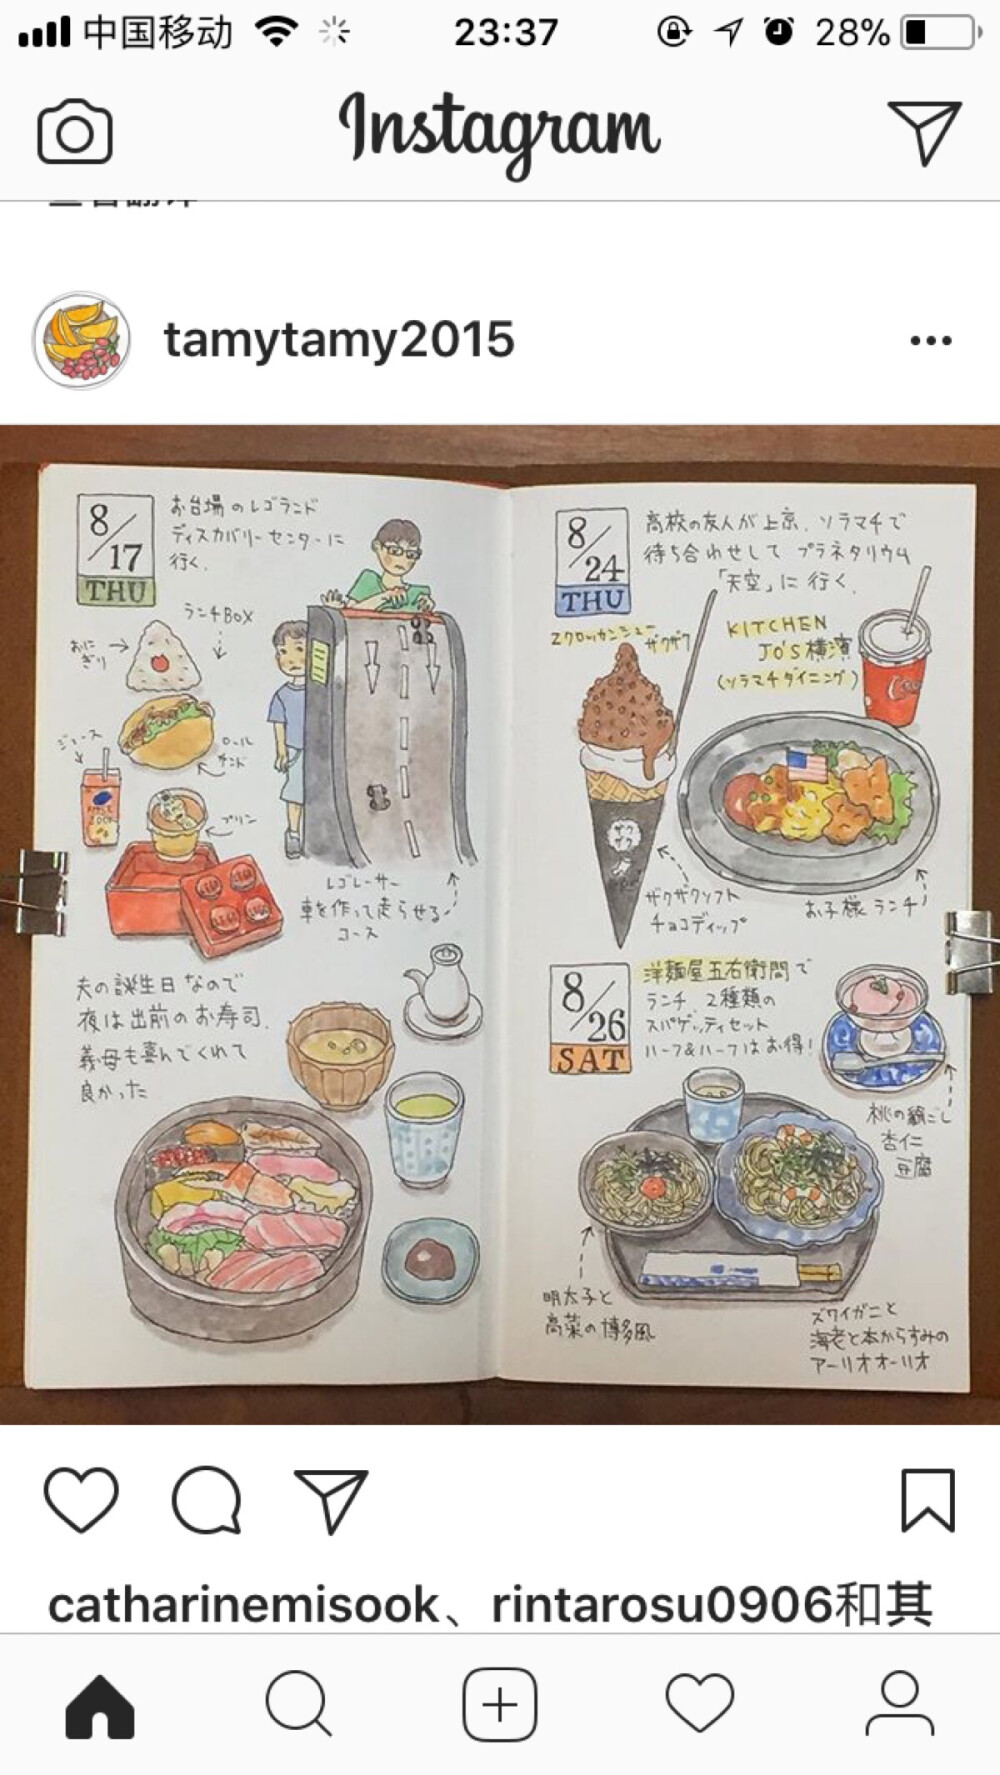 中国移动
23:37
28%
Instagram
tamytamy2015
8/17
THU
お台場のレゴランド
ディスカバリーセンターに
行く.
ランチBOX
おに
ぎり
ジュース
ロール
サンド
プリン
レゴレーサー
車を作って走らせる
コース
夫の誕生日なので
夜は出前のお寿司.
義母も喜んでくれて
良かった
8/24
THU
高校の友人が上京.ソラマチで
待ち合わせして プラネタリウム
「天空」に行く.
クロッカンシュー
ザクザク
KITCHEN
JO'S 横濱
(ソラマチダイニング)
ザク
ザク
ザクザクソフト
チョコディップ
お子様ランチ
8/26
SAT
洋麺屋五右衛門で
ランチ.2種類の
スパゲッティセット
ハーフ&ハーフはお得!
桃の絹ごし
杏仁
豆腐
明太子と
高菜の博多風
ズワイガニと
海老と本からすみの
アーリオオーリオ
catharinemisook、rintarosu0906和其